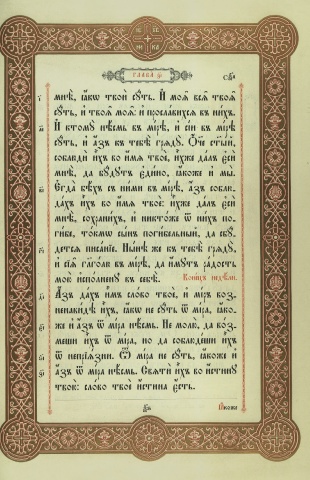 мнѣ, ꙗ҆́кѡ твоѝ сꙋ́ть. И҆ моѧ̑ всѧ̑ твоѧ̑
сꙋ́ть, и҆ твоѧ̑ моѧ̑: и҆ просла́вихсѧ въ ни́хъ.
И҆ ктомꙋ̀ нѣ́смь въ мі́рѣ, и҆ сі́и въ мі́рѣ
сꙋ́ть, и҆ а҆́зъ къ тебѣ̀ грѧдꙋ̀. Ѻ҆́ч҃е ст҃ы́й,
соблюдѝ и҆̀хъ во и҆́мѧ твоѐ, и҆̀хже да́лъ є҆сѝ
мнѣ̀, да бꙋ́дꙋтъ є҆ди́но, ꙗ҆́коже и҆ мы̀.
Є҆гда̀ бѣ́хъ съ ни́ми въ мі́рѣ, а҆́зъ соблю-
да́хъ и҆̀хъ во и҆́мѧ твоѐ: и҆̀хже да́лъ є҆сѝ
мнѣ̀, сохрани́хъ, и҆ никто́же ѿ ни́хъ по-
ги́бе, то́кмѡ сы́нъ поги́бельный, да сбꙋ́-
детсѧ писа́нїе. Нн҃ѣ же къ тебѣ̀ грѧдꙋ̀,
и҆ сїѧ̑ гл҃го́лю въ мі́рѣ, да и҆́мꙋтъ ра́дость
мою̀ и҆спо́лненꙋ въ себѣ̀. Коне́цъ недѣ́ли.
А҆́зъ да́хъ и҆̀мъ сло́во твоѐ, и҆ мі́ръ воз-
ненави́дѣ и҆̀хъ, ꙗ҆́кѡ не сꙋ́ть ѿ мі́ра, ꙗ҆́ко-
же и҆ а҆́зъ ѿ мі́ра нѣ́смь. Не молю̀, да во́з-
меши и҆̀хъ ѿ мі́ра, но да соблюде́ши и҆̀хъ
ѿ непрїѧ́зни. Ѿ мі́ра не сꙋ́ть, ꙗ҆́коже и҆
а҆́зъ ѿ мі́ра нѣ́смь. Ст҃и́ и҆̀хъ во и҆́стинꙋ
твою̀: сло́во твоѐ и҆́стина є҆́сть.
Ꙗ҆́коже